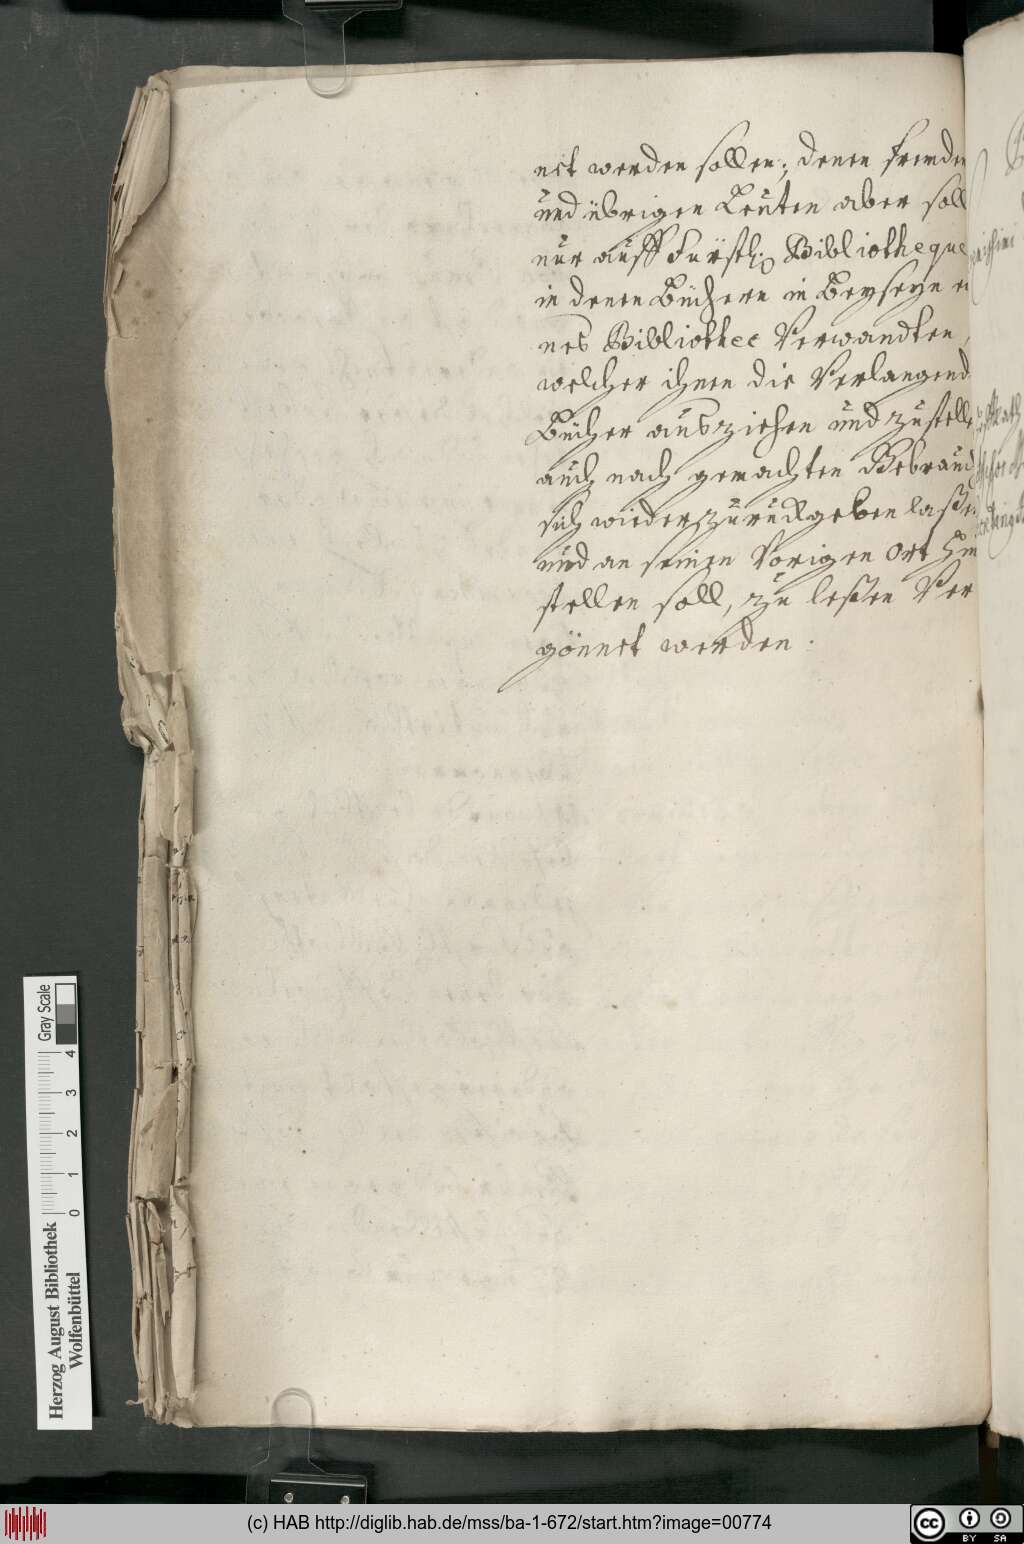 net werden sollen; denen fremden
und übrigen Leuten aber soll
nur auff Fürstl: Bibliotheque
in denen Büchern in Beyseyn ei
nes Bibliothec Verwandten,
welcher ihnen die Verlangend
Bücher ausziehen und zustelle
auch nach gemachten Gebrauch
sich wieder zurück geben laßen
und an seinen Vorigen Ort hin
stellen soll, zu leßen Ver
gönnet werden.
Gray Scale
0 1 2 3 4
Herzog August Bibliothek
Wolfenbüttel
(c) HAB http://diglib.hab.de/mss/ba-1-672/start.htm?image=00774
cc BY SA